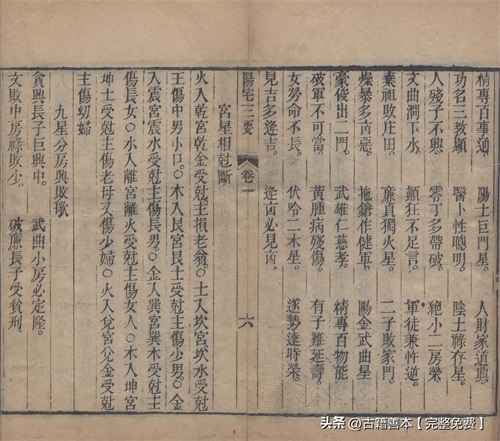 精專百事通　陽土巨門星。　人財家道興。
功名三敎顯　醫卜性聰明。　陰土祿存星。
人殘子不興。　零丁多帶破。　絶小二房榮。
文曲澗下水　顛狂不足言。　軍徒兼忤逆。
棄祖敗庄田。　廉貞獨火星。　二子敗家門。
燥暴多凶惡。　拖鎗作健軍。　陽金武曲星
豪俊出二門。　武雄仁慈孝。　精專百物能
破軍不可當。　黃腫病殘傷。　有子難延壽。
女勞命不長。　伏吟二木星。　遂勢逢時榮。
見吉多逢吉。　逢凶必見凶。
陽宅三要　卷一　六
宮星相尅斷
火入乾宮乾金受尅主損老翁○土入坎宮坎水受尅
主傷中男小口○木入艮宮艮土受尅主傷少男○金
入震宮震木受尅主傷長男○金入巽宮巽木受尅主
傷長女○水入離宮離火受尅主傷女人○木入坤宮
坤土受尅主傷老母又傷少婦○火入兌宮兌金受尅
主傷幼婦
九星分房興敗歌
貪興長子巨興中。　武曲小房必定隆。
文敗中房祿敗少。　破廉長子受貧刑。
头条 @古籍善本【完整免费】